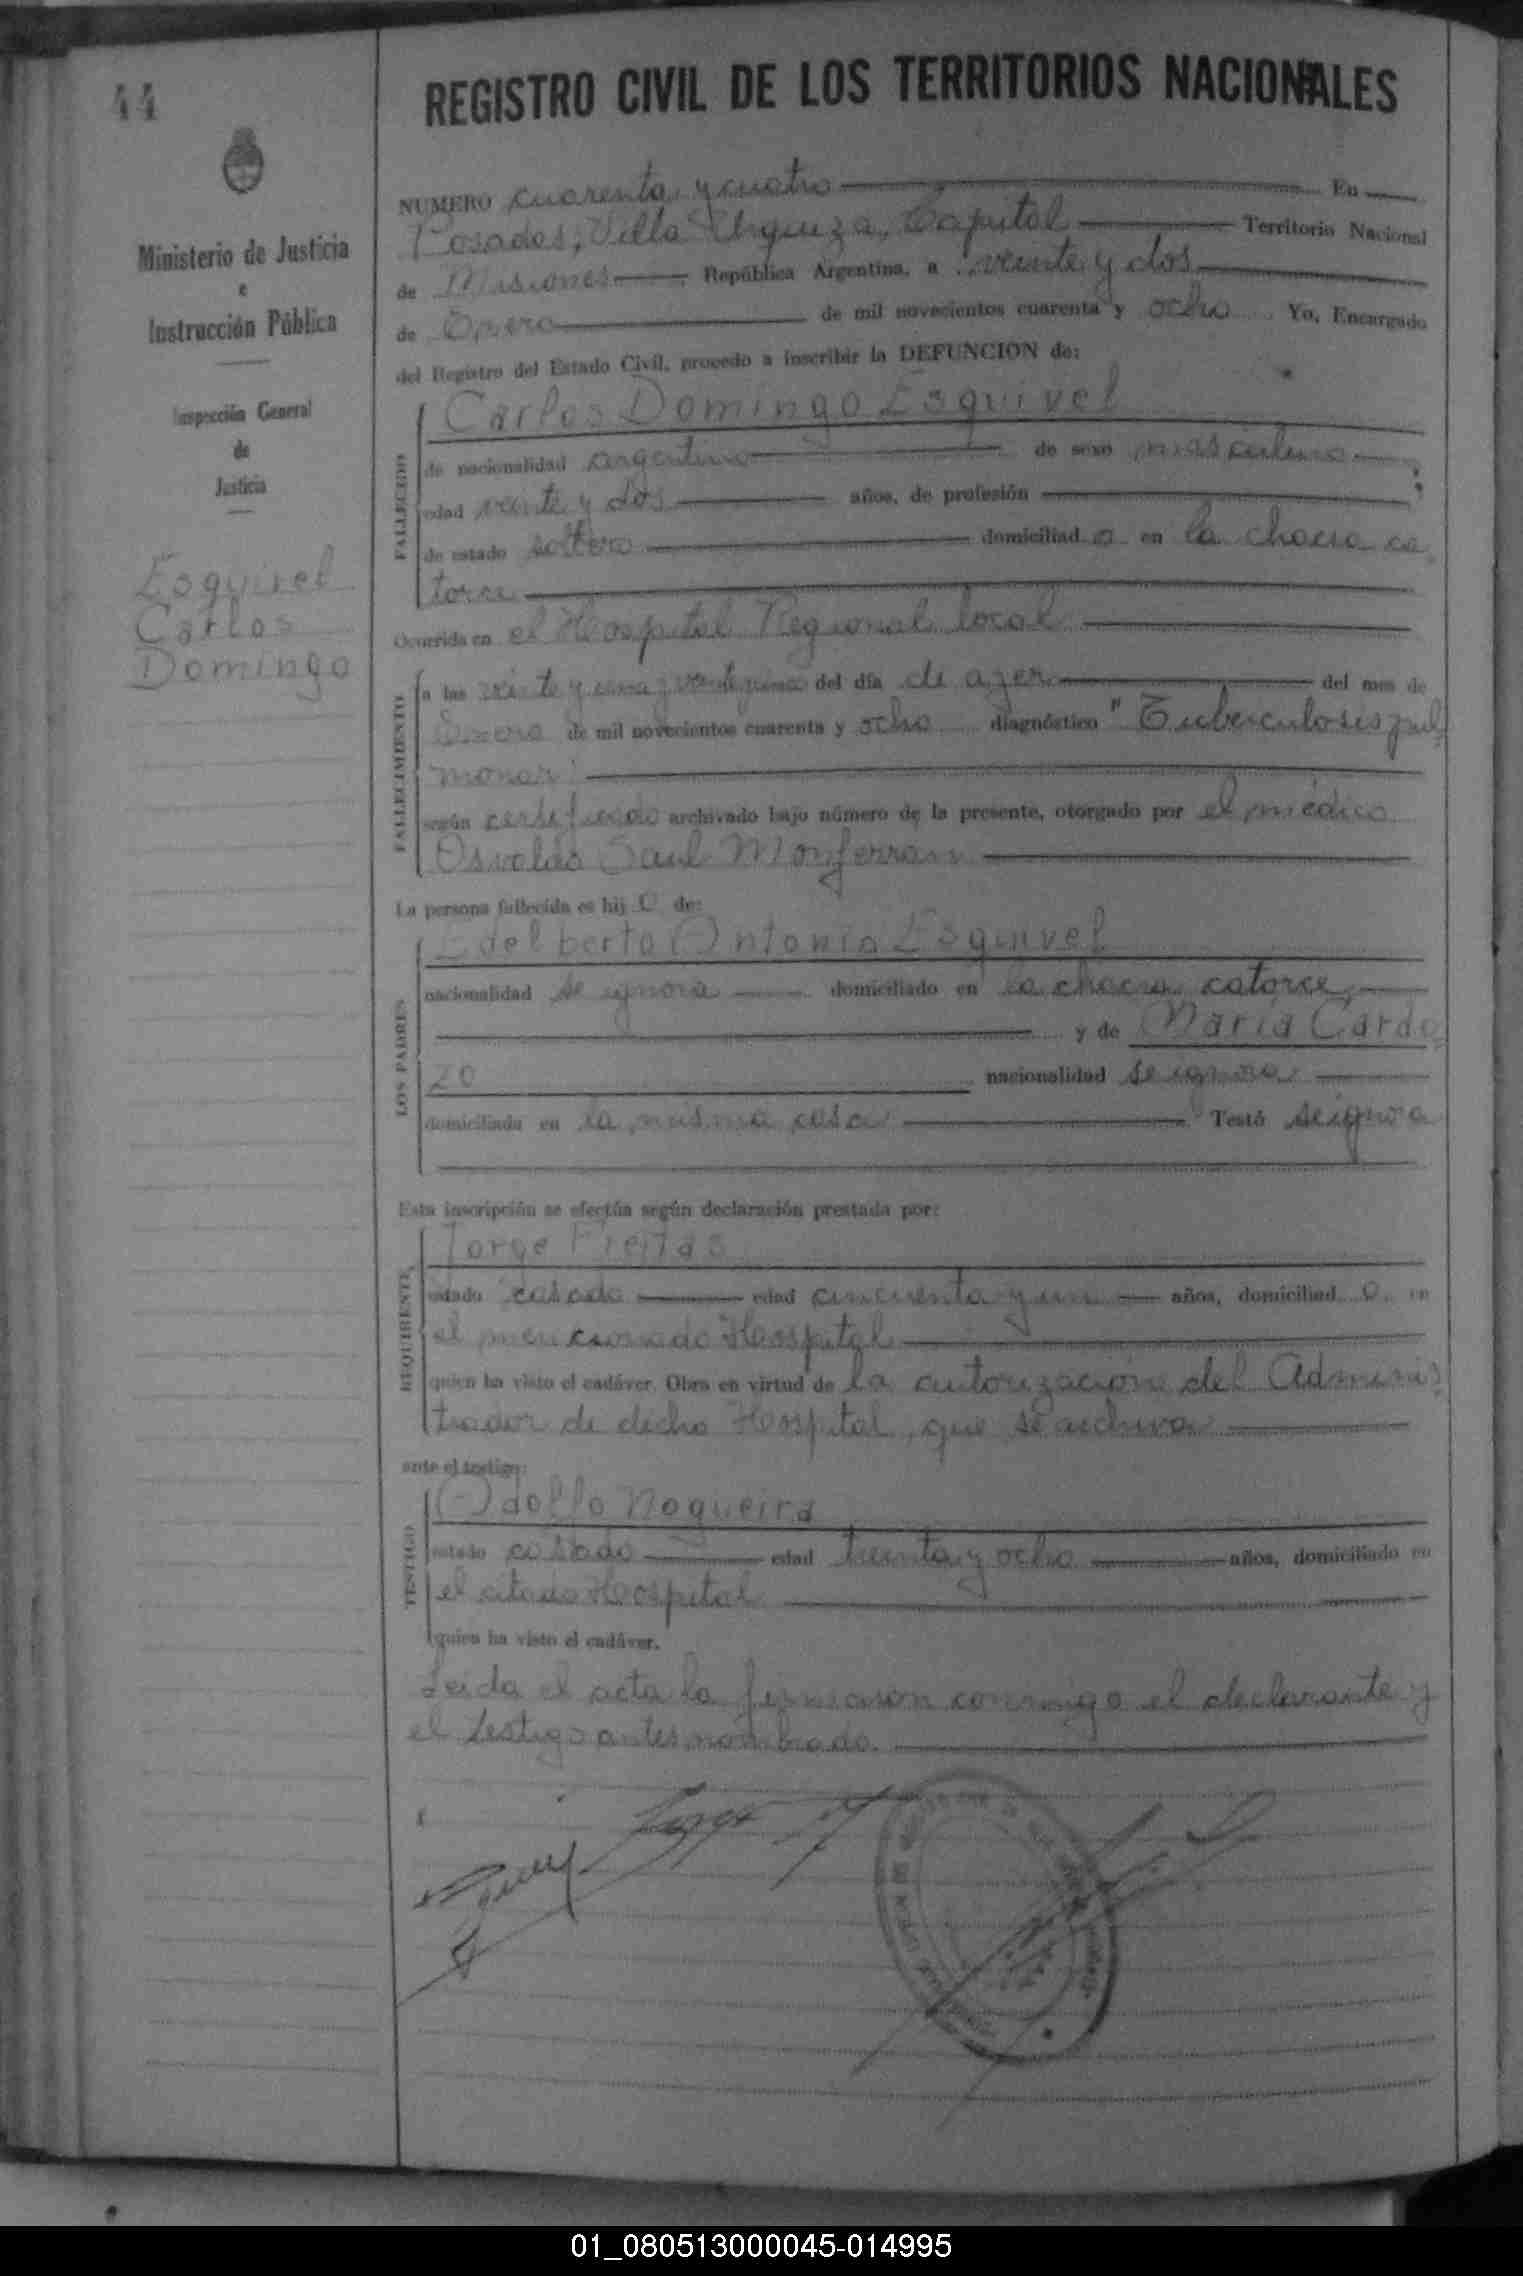 44
REGISTRO CIVIL DE LOS TERRITORIOS NACIONALES
Ministerio de Justicia
e
Instrucción Pública
Inspección General
de
Justicia
Esquivel
Carlos
Domingo
NUMERO cuarenta y cuatro En
Posadas, Villa Urquiza, Capital Territorio Nacional
de Misiones República Argentina, a veinte y dos
de Enero de mil novecientos cuarenta y ocho Yo, Encargado
del Registro del Estado Civil, procedo a inscribir la DEFUNCION de:
FALLECIDO
Carlos Domingo Esquivel
de nacionalidad argentino de sexo masculino ;
edad veinte y dos años, de profesión
de estado soltero domiciliad o en la chacra ca
torce
Ocurrida en el Hospital Regional local
FALLECIMIENTO
a las veinte y una y del día de ayer del mes de
Enero de mil novecientos cuarenta y ocho diagnóstico "Tuberculosis pul
monar"
según certificado archivado bajo número de la presente, otorgado por el médico
Osvaldo Saul Monferran
La persona fallecida es hij o de:
LOS PADRES
Edelberto Antonio Esquivel
nacionalidad se ignora domiciliado en la chacra catorce
y de Maria Cardo
zo nacionalidad se ignora
domiciliada en la misma casa Testó se ignora
Esta inscripción se efectúa según declaración prestada por:
REQUIRENTE
Jorge Freitas
estado casado edad cincuenta y un años, domiciliad o en
el mencionado Hospital
quien ha visto el cadáver. Obra en virtud de la autorización del Adminis
trador de dicho Hospital, que se archiva
ante el testigo:
TESTIGO
Adolfo Nogueira
estado casado edad treinta y ocho años, domiciliado en
el citado Hospital
quien ha visto el cadáver.
Leida el acta la firmaron conmigo el declarante y
el testigo antes nombrado.
Jorge
01_080513000045-014995